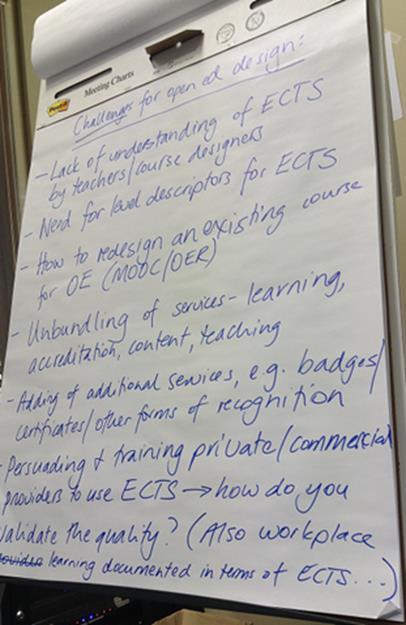 Post-it
Meeting Charts
Challenges for open ed design:
- Lack of understanding of ECTS
by teachers/course designers
- Need for level descriptors for ECTS
- How to redesign an existing course
for OE (MOOC/OER)
- Unbundling of services - learning,
accreditation, content, teaching
- Adding of additional services, e.g. badges/
certificates/other forms of recognition
- Persuading + training private/commercial
providers to use ECTS → how do you
validate the quality? (Also workplace
learning documented in terms of ECTS...)